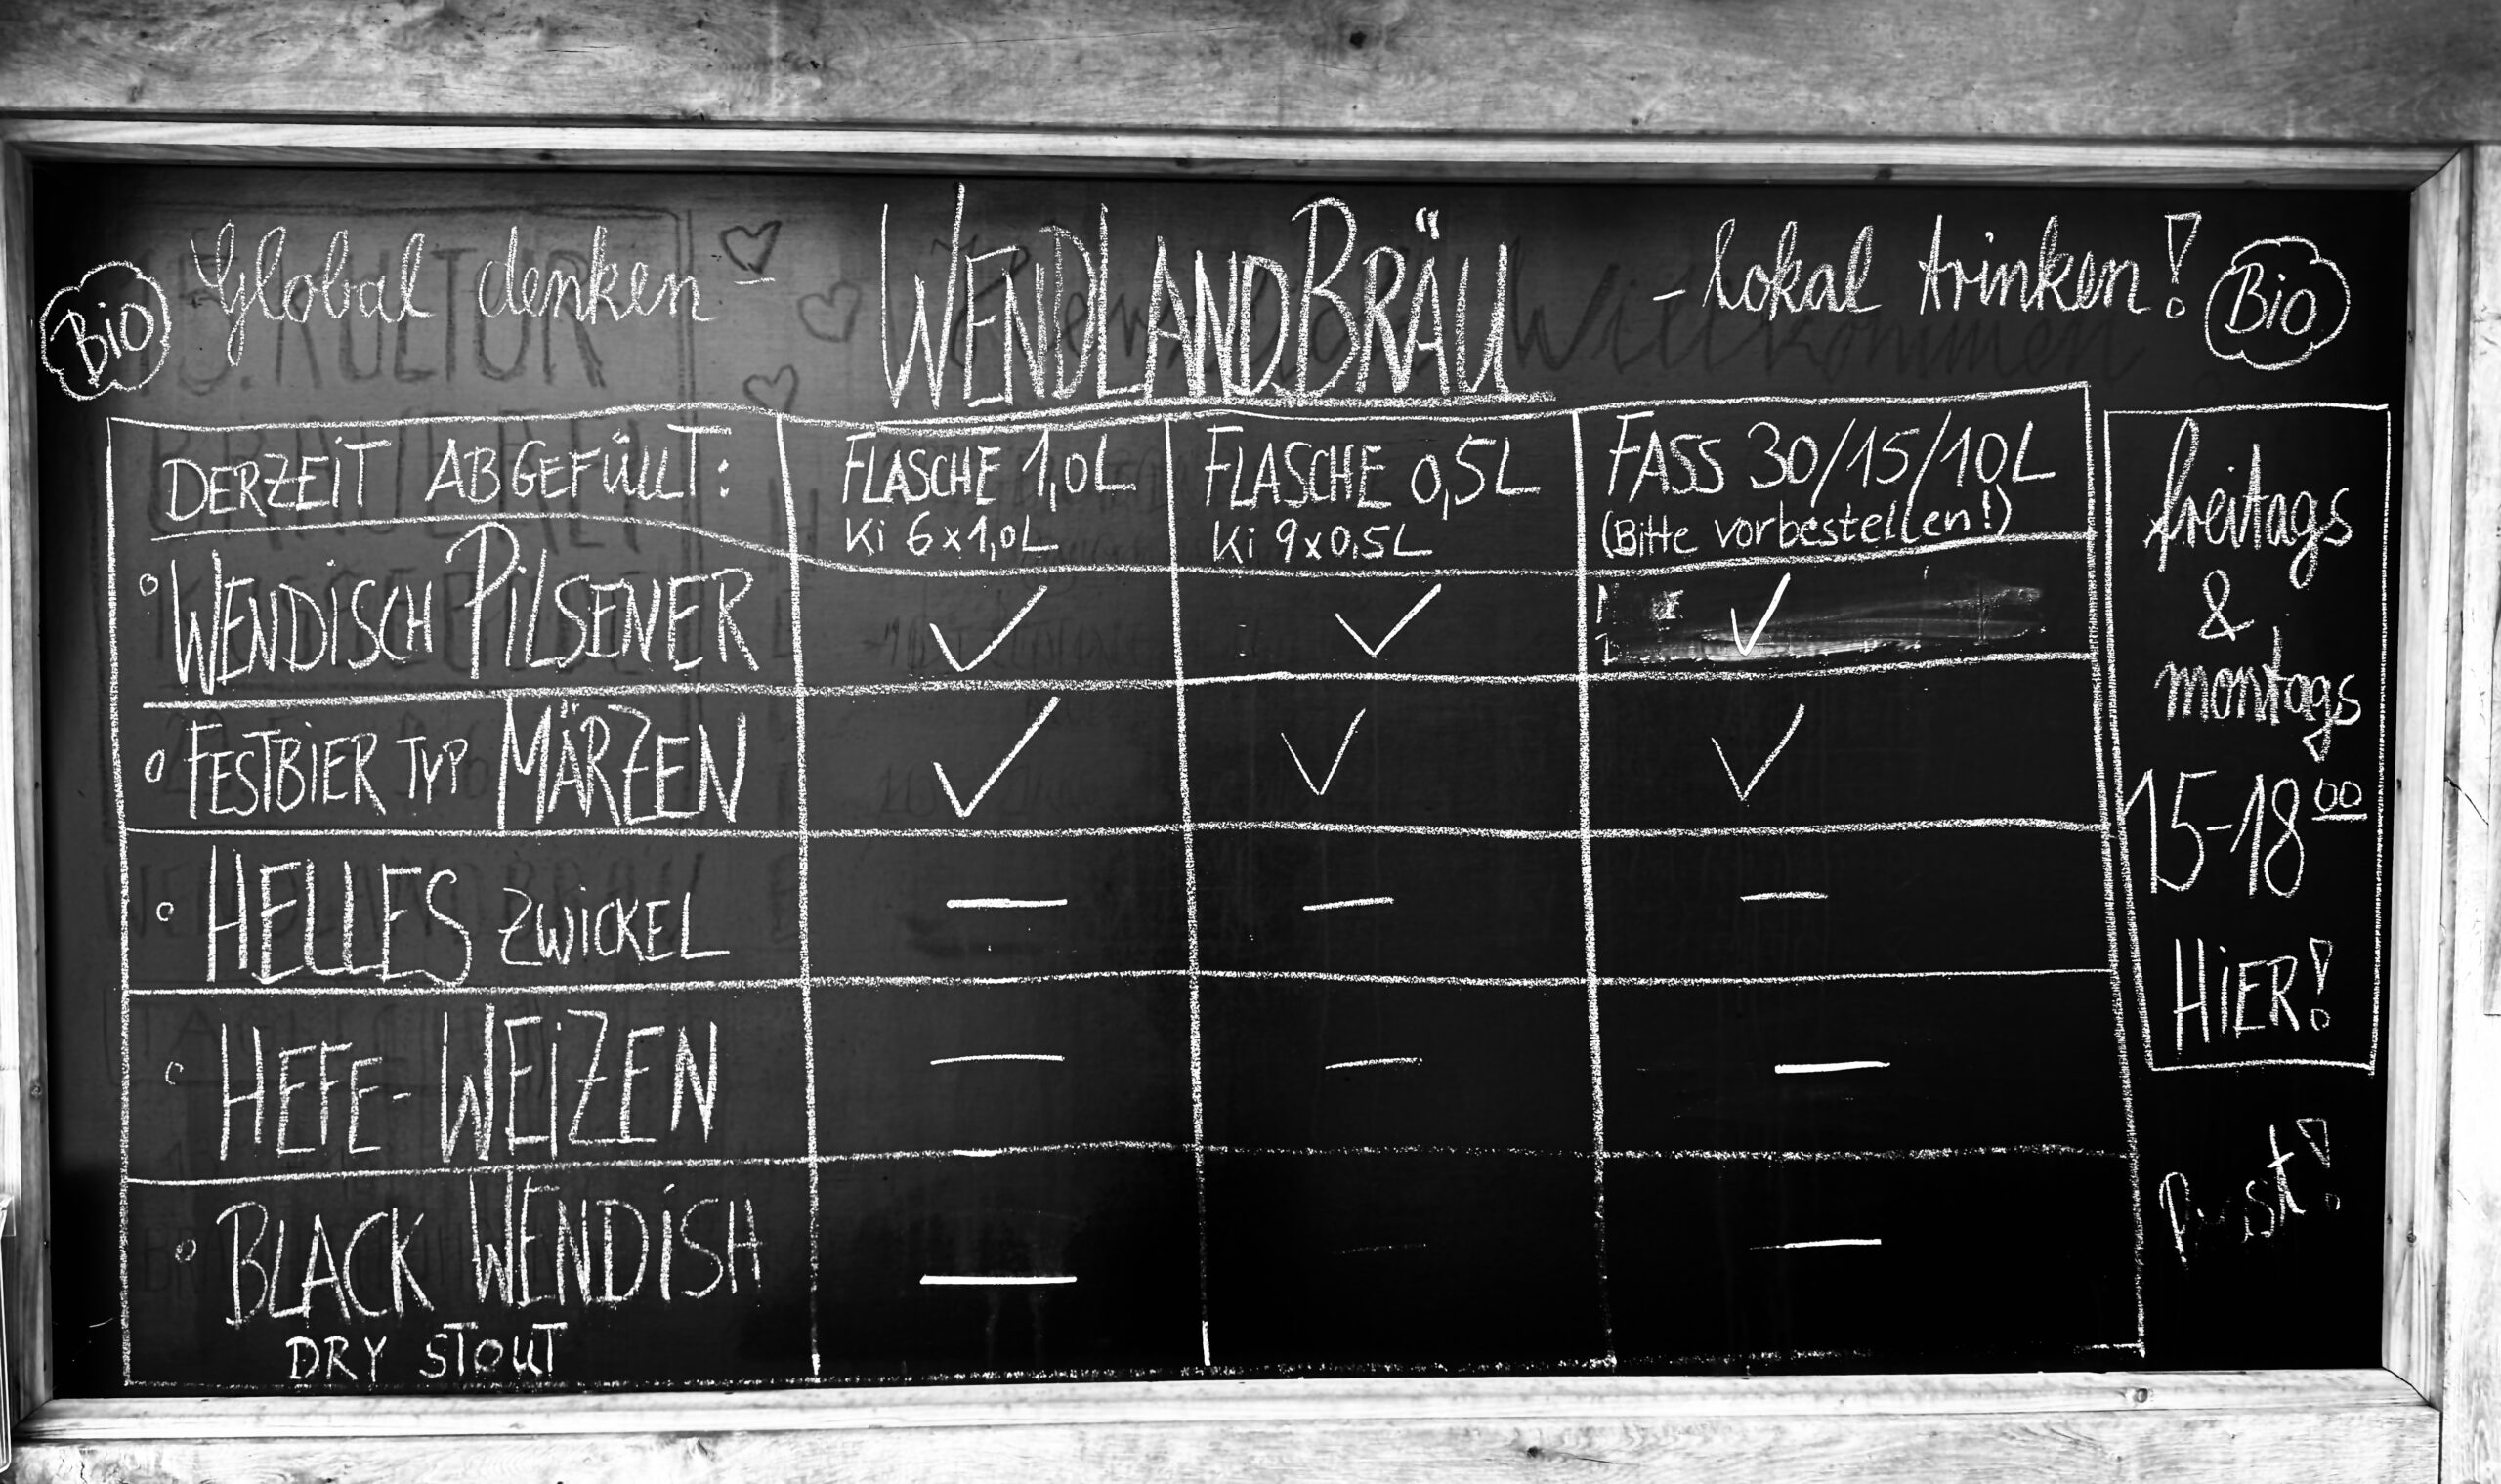 Bio Global denken - WENDLANDBRÄU - lokal trinken! Bio
DERZEIT ABGEFÜLLT:
FLASCHE 1,0L
Ki 6x1,0L
FLASCHE 0,5L
Ki 9x0,5L
FASS 30/15/10L
(Bitte vorbestellen!)
° WENDISCH PILSENER ✓ ✓ ✓
° FESTBIER TYP MÄRZEN ✓ ✓ ✓
° HELLES ZWICKEL — — —
° HEFE-WEIZEN — — —
° BLACK WENDISH — — —
DRY STOUT
freitags
&
montags
15-18⁰⁰
HIER!
Prost!